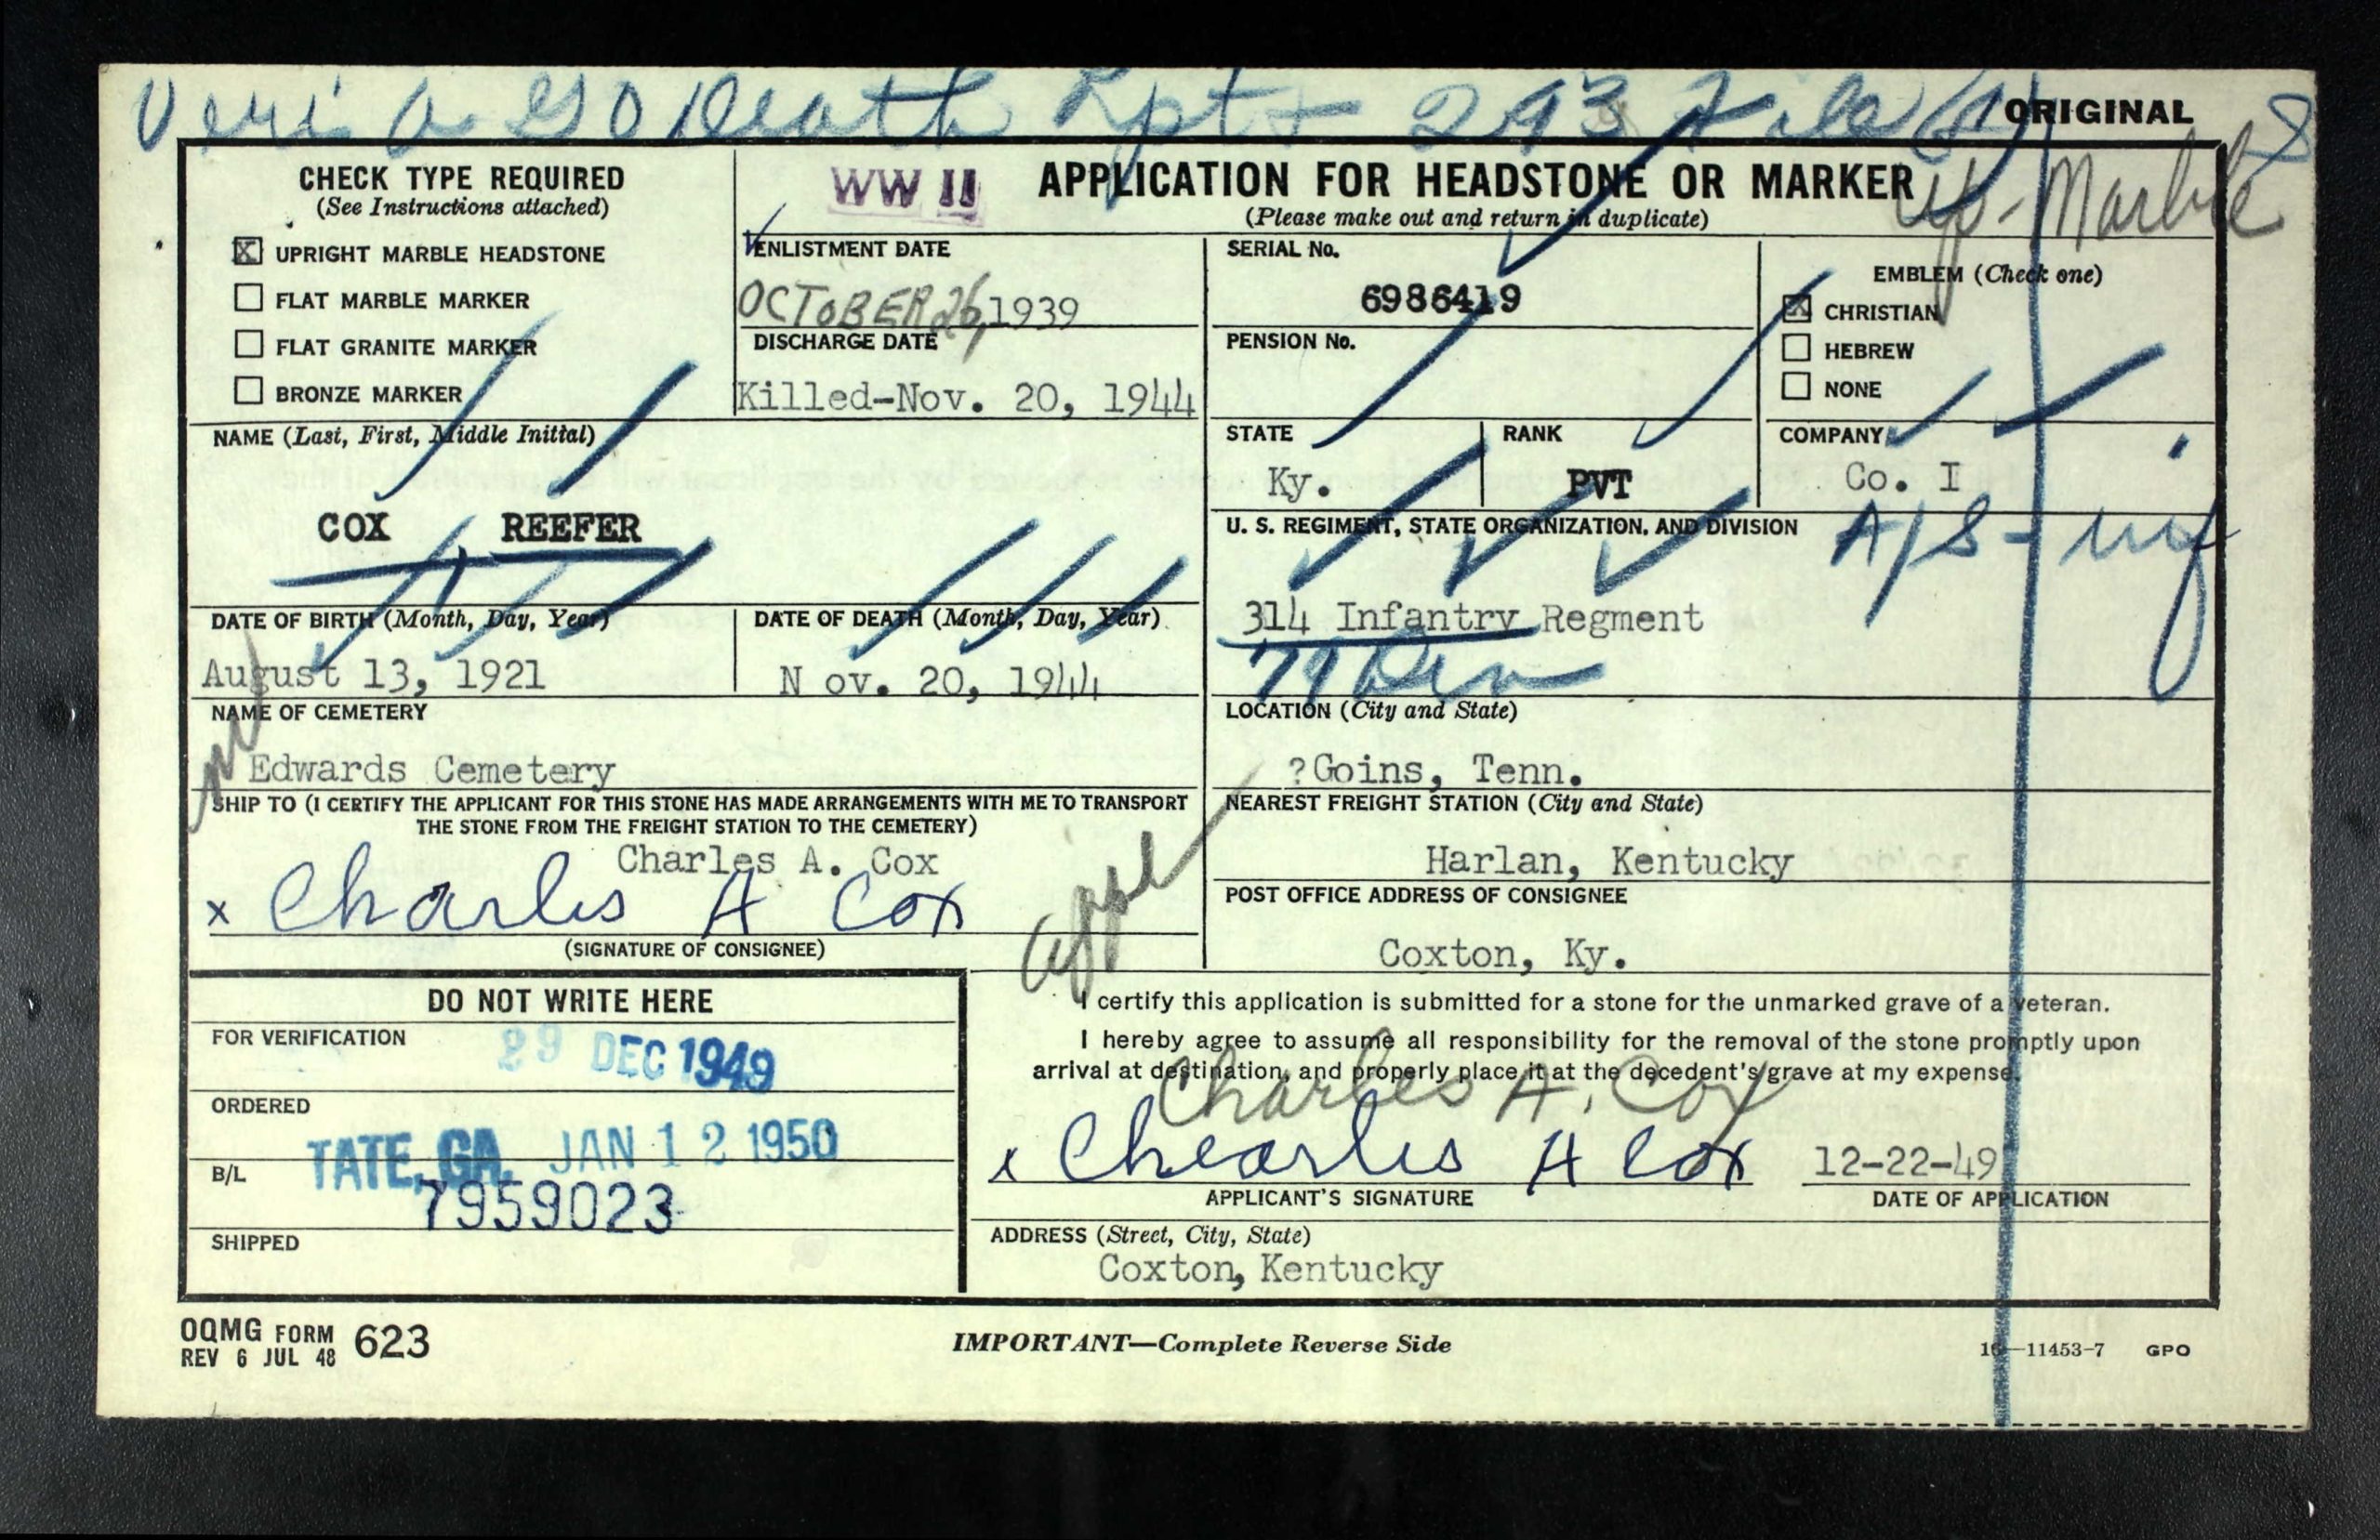 Veri A G O Death Rpt + 293 File
ORIGINAL
CHECK TYPE REQUIRED
(See Instructions attached)
X UPRIGHT MARBLE HEADSTONE
FLAT MARBLE MARKER
FLAT GRANITE MARKER
BRONZE MARKER
WW II
APPLICATION FOR HEADSTONE OR MARKER
(Please make out and return in duplicate)
Up-Marble
ENLISTMENT DATE
OCTOBER 26, 1939
DISCHARGE DATE
Killed-Nov. 20, 1944
SERIAL No.
6986419
PENSION No.
EMBLEM (Check one)
X CHRISTIAN
HEBREW
NONE
NAME (Last, First, Middle Initial)
COX, REEFER
STATE
Ky.
RANK
PVT
COMPANY
Co. I
U. S. REGIMENT, STATE ORGANIZATION, AND DIVISION
A/S-
314 Infantry Regment
79 Div
DATE OF BIRTH (Month, Day, Year)
August 13, 1921
DATE OF DEATH (Month, Day, Year)
N ov. 20, 1944
NAME OF CEMETERY
Edwards Cemetery
LOCATION (City and State)
?Goins, Tenn.
SHIP TO (I CERTIFY THE APPLICANT FOR THIS STONE HAS MADE ARRANGEMENTS WITH ME TO TRANSPORT
THE STONE FROM THE FREIGHT STATION TO THE CEMETERY)
Charles A. Cox
x Charles A Cox
(SIGNATURE OF CONSIGNEE)
NEAREST FREIGHT STATION (City and State)
Harlan, Kentucky
POST OFFICE ADDRESS OF CONSIGNEE
Coxton, Ky.
DO NOT WRITE HERE
FOR VERIFICATION
29 DEC 1949
ORDERED
TATE, GA. JAN 12 1950
B/L
7959023
SHIPPED
I certify this application is submitted for a stone for the unmarked grave of a veteran.
I hereby agree to assume all responsibility for the removal of the stone promptly upon
arrival at destination, and properly place it at the decedent's grave at my expense.
Charles A. Cox
x Chearles A Cox
12-22-49
APPLICANT'S SIGNATURE
DATE OF APPLICATION
ADDRESS (Street, City, State)
Coxton, Kentucky
OQMG FORM 623
REV 6 JUL 48
IMPORTANT—Complete Reverse Side
16—11453-7 GPO